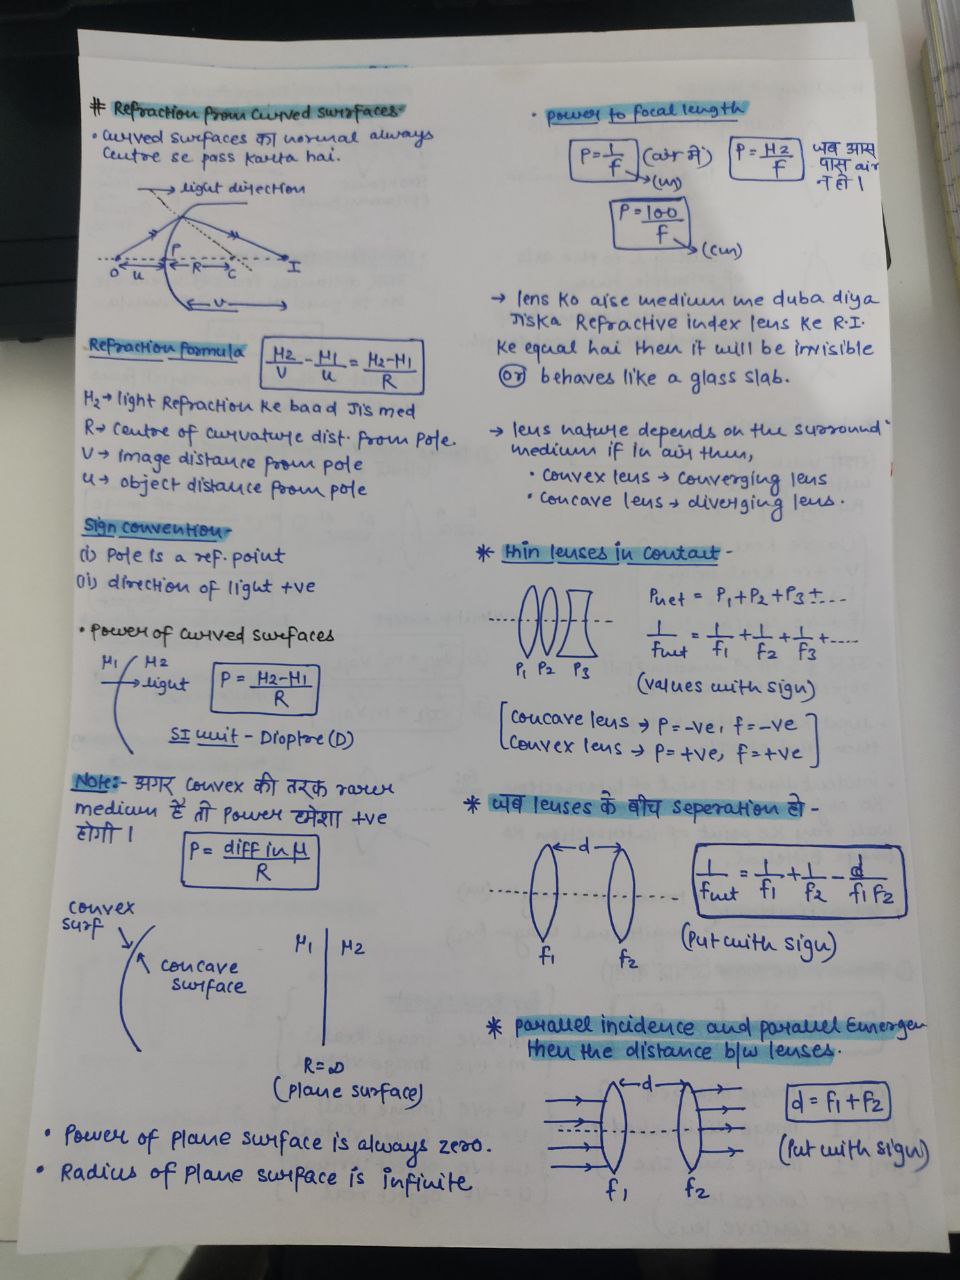 # Refraction from curved surfaces-
• curved surfaces का normal always
centre se pass karta hai.
light direction
O u P R C I
v
Refraction formula μ2/v - μ1/u = μ2-μ1/R
μ2→ light Refraction ke baad Jis med
R→ Centre of curvature dist. from pole.
V→ image distance from pole
u→ object distance from pole
Sign convention-
(i) Pole is a ref. point
(ii) direction of light +ve
• Power of curved surfaces
μ1 μ2
light
P = μ2-μ1/R
SI unit - Dioptre (D)
Note:- अगर convex की तरफ rarer
medium है तो Power हमेशा +ve
होगी।
P = diff in μ/R
convex
surf
concave
surface
μ1 μ2
R=∞
(plane surface)
• Power of plane surface is always zero.
• Radius of plane surface is infinite
• power to focal length
P=1/f (air में)
(m)
P=μ2/f जब आस
पास air
न हो।
P=100/f
(cm)
→ lens ko aise medium me duba diya
Jiska Refractive index lens ke R.I.
ke equal hai then it will be invisible
(or) behaves like a glass slab.
→ lens nature depends on the surround
medium if in air then,
• convex lens → converging lens
• concave lens → diverging lens.
* thin lenses in contact -
P1 P2 P3
Pnet = P1+P2+P3+....
1/fnet = 1/f1+1/f2+1/f3+....
(values with sign)
[concave lens → P=-ve, f=-ve
convex lens → P=+ve, f=+ve]
* जब lenses के बीच seperation हो -
d
f1 f2
1/fnet = 1/f1+1/f2-d/f1f2
(Put with sign)
* parallel incidence and parallel Emergen
then the distance b/w lenses.
d
f1 f2
d=f1+f2
(Put with sign)